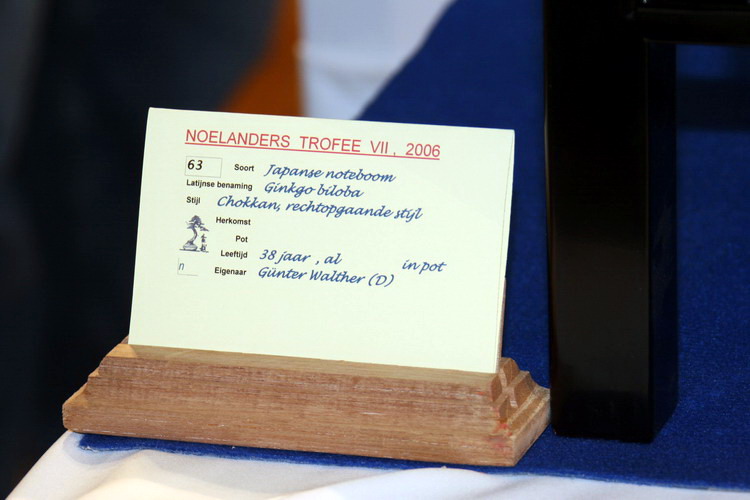 NOELANDERS TROFEE VII, 2006
63 Soort Japanse noteboom
Latijnse benaming Ginkgo biloba
Stijl Chokkan, rechtopgaande stijl
Herkomst
Pot
Leeftijd 38 jaar , al in pot
n Eigenaar Günter Walther (D)